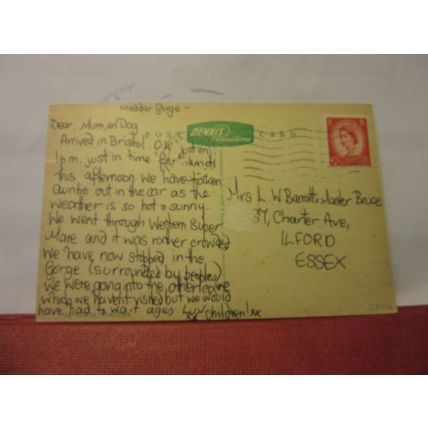 Cheddar Gorge -
Dear Mum, an Dog
Arrived in Bristol O.K. just on
1p.m. just in time for lunch
This afternoon we have taken
Auntie out in the car as the
weather is so hot & sunny.
We went through Weston Super
Mare and it was rather crowded
We have now stopped in the
Gorge (surrounded by people)
we were going into the other cave
which we haven't visited but we would
have had to wait ages
children! xx
POST CARD
DENNIS
Productions
Mrs L W Barrott, Master Bruce
37, Charter Ave,
ILFORD
ESSEX